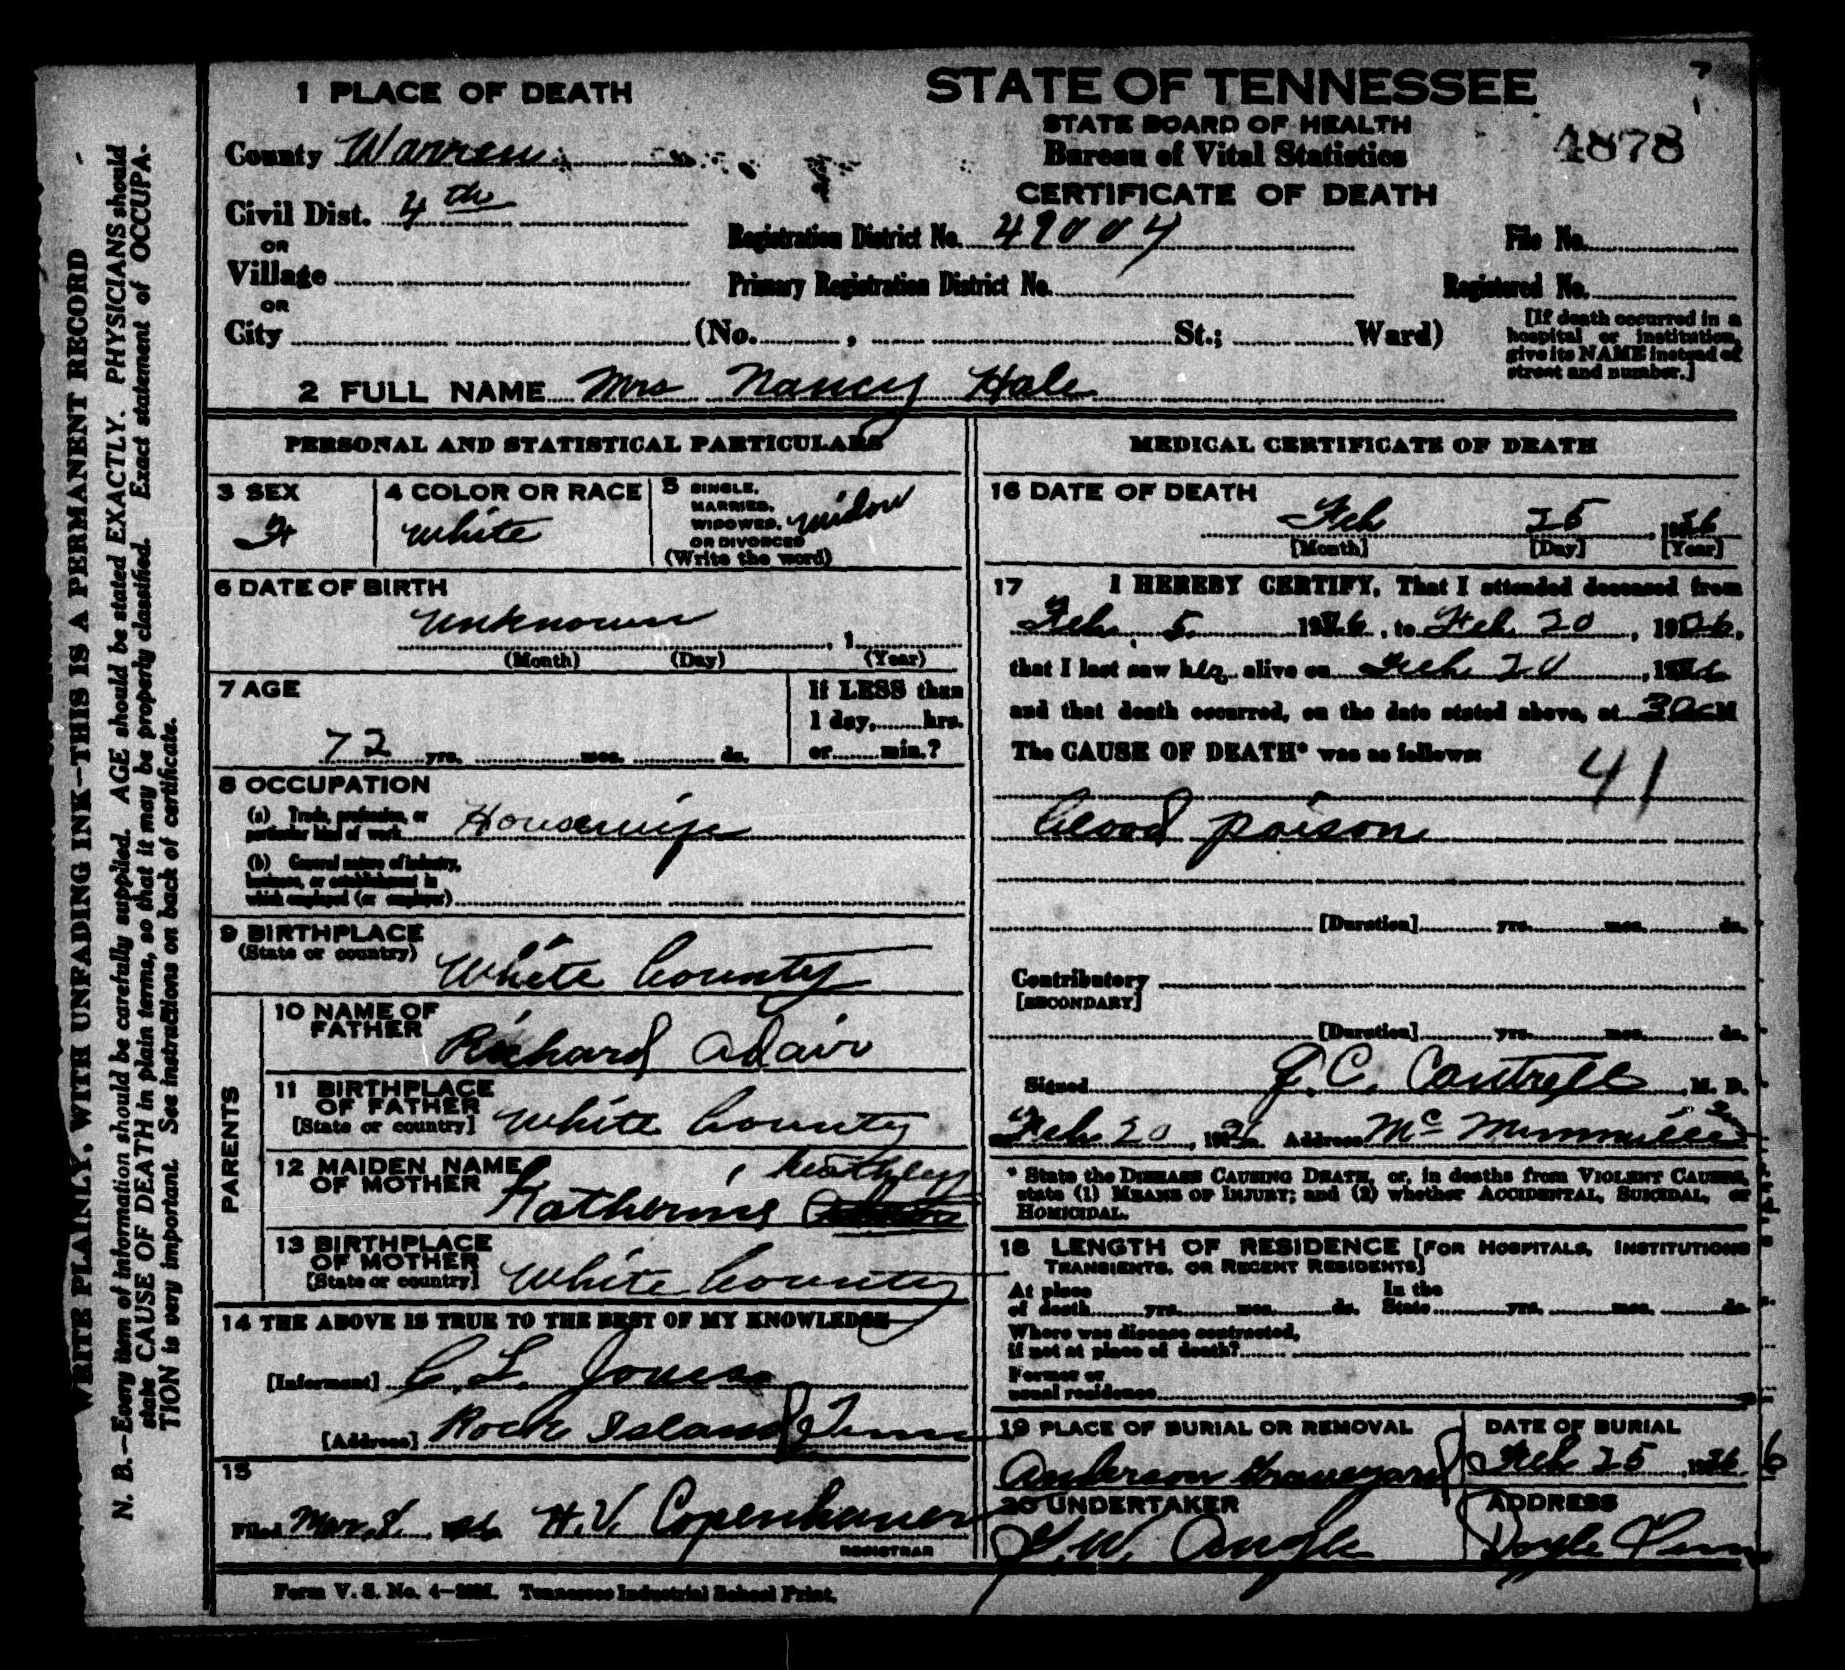 1 PLACE OF DEATH
STATE OF TENNESSEE
STATE BOARD OF HEALTH
Bureau of Vital Statistics
CERTIFICATE OF DEATH
4878
County Warren
Civil Dist. 4th
OR
Village
OR
City (No. , St.; Ward)
Registration District No. 49004
Primary Registration District No.
File No.
Registered No.
[If death occurred in a
hospital or institution,
give its NAME instead of
street and number.]
2 FULL NAME Mrs Nancy Hale
PERSONAL AND STATISTICAL PARTICULARS
3 SEX
F
4 COLOR OR RACE
White
5 SINGLE,
MARRIED,
WIDOWED,
OR DIVORCED
(Write the word)
Widow
6 DATE OF BIRTH
Unknown
, 1
(Month) (Day) (Year)
7 AGE
72 yrs. mos. ds.
If LESS than
1 day, hrs.
or min.?
8 OCCUPATION
(a) Trade, profession, or
particular kind of work Housewife
(b) General nature of industry,
business, or establishment in
which employed (or employer)
9 BIRTHPLACE
(State or country)
White County
PARENTS
10 NAME OF
FATHER
Richard Adair
11 BIRTHPLACE
OF FATHER
[State or country] White County
12 MAIDEN NAME
OF MOTHER
Katherine
13 BIRTHPLACE
OF MOTHER
[State or country] White County
14 THE ABOVE IS TRUE TO THE BEST OF MY KNOWLEDGE
[Informant] C. L. Jones
[Address] Rock Island, Tenn
15
Filed Mar. 8. 26 H.V. Copenhaver
REGISTRAR
Form V. S. No. 4 Tennessee Industrial School Print.
MEDICAL CERTIFICATE OF DEATH
16 DATE OF DEATH
Feb 25, 1926
[Month] [Day] [Year]
17 I HEREBY CERTIFY, That I attended deceased from
Feb. 5 1926, to Feb 20, 1926,
that I last saw her alive on Feb 20, 1926
and that death occurred, on the date stated above, at M
The CAUSE OF DEATH* was as follows:
41
Blood poison
[Duration] yrs. mos. ds.
Contributory
[SECONDARY]
[Duration] yrs. mos. ds.
Signed J. C. Cantrell, M. D.
Feb 20, 1926 Address McMinnville
* State the DISEASE CAUSING DEATH, or, in deaths from VIOLENT CAUSES,
state (1) MEANS OF INJURY; and (2) whether ACCIDENTAL, SUICIDAL, or
HOMICIDAL.
18 LENGTH OF RESIDENCE [FOR HOSPITALS, INSTITUTIONS
TRANSIENTS, OR RECENT RESIDENTS]
At place
of death yrs. mos. ds.
In the
State yrs. mos. ds.
Where was disease contracted,
if not at place of death?
Former or
usual residence
19 PLACE OF BURIAL OR REMOVAL
Anderson Graveyard
DATE OF BURIAL
Feb 25, 1926
20 UNDERTAKER
J. W. Angle
ADDRESS
Doyle Tenn
WRITE PLAINLY, WITH UNFADING INK—THIS IS A PERMANENT RECORD
N. B.—Every item of information should be carefully supplied. AGE should be stated EXACTLY. PHYSICIANS should
state CAUSE OF DEATH in plain terms, so that it may be properly classified. Exact statement of OCCUPA-
TION is very important. See instructions on back of certificate.